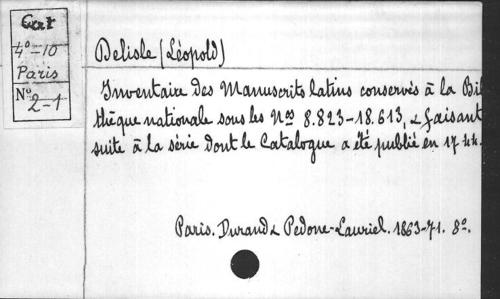 Cat
4°-10
Paris
N° 2-1
Delisle (Léopold)
Inventaire des Manuscrits latins conservés à la Bil
thèque nationale sous les Nos 8.823-18.613, & faisant
suite à la série dont le Catalogue a été publié en 1744.
Paris. Durand & Pedone-Lauriel. 1863-71. 8°.